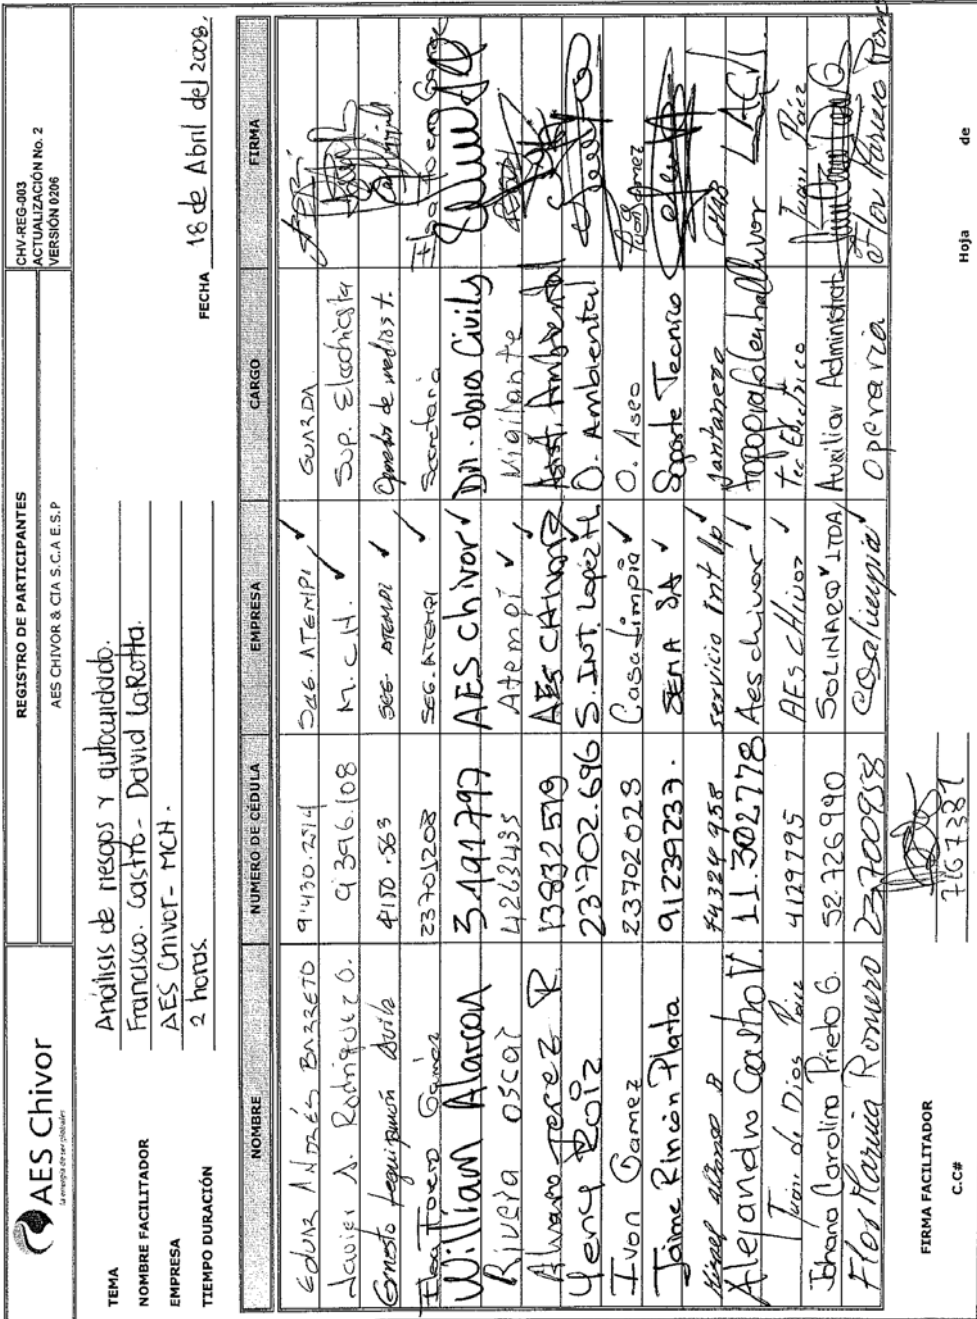 AES Chivor
La energía de ser globales
REGISTRO DE PARTICIPANTES
AES CHIVOR & CIA S.C.A E.S.P
CHV-REG-003
ACTUALIZACIÓN No. 2
VERSIÓN 0206
TEMA Análisis de riesgos y autocuidado.
NOMBRE FACILITADOR Francisco. castro - David LaRotta.
EMPRESA AES Chivor - MCH.
TIEMPO DURACIÓN 2 horas.
FECHA 18 de Abril del 2008.
NOMBRE NUMERO DE CEDULA EMPRESA CARGO FIRMA
ANDRÉS BARRETO 9'430.2514 ATEMPI GUARDA
Javier A. Rodriguez O. 9'396.108 M.C.H. Sup. Electricista
Ernesto Avila 4150.563 SEG. ATEMPI de medios t.
Gamez 23701208 SEG. ATEMPI Secretaria
William Alarcon 3.191.797 AES Chivor Dir. obras Civiles
Rivera oscar 4263435 Atempi Vigilante
Alvaro Perez R. AES CHIVOR Asist. Ambiental
Yency Ruiz 23'702.696 S. INT. López H O. Ambiental
Ivon Gamez 23702028 Casa Limpia O. Aseo Ivon Gamez
Jaime Rincón Plata 91239233. SEMA SA Soporte Tecnico
servicio int
Alejandro Castro V. 11.302778 Aes chivor
Juan de Dios Paez 4129795 AES CHivor Tec Electrico Juan Páez
Johana Carolina Prieto G. 52.726940 SOLINARQ LTDA Auxiliar Administrat
Flor Maria Romero 23700958 Casalimpia Operaria Flor Maria Romero
FIRMA FACILITADOR
C.C# 7167381
Hoja de